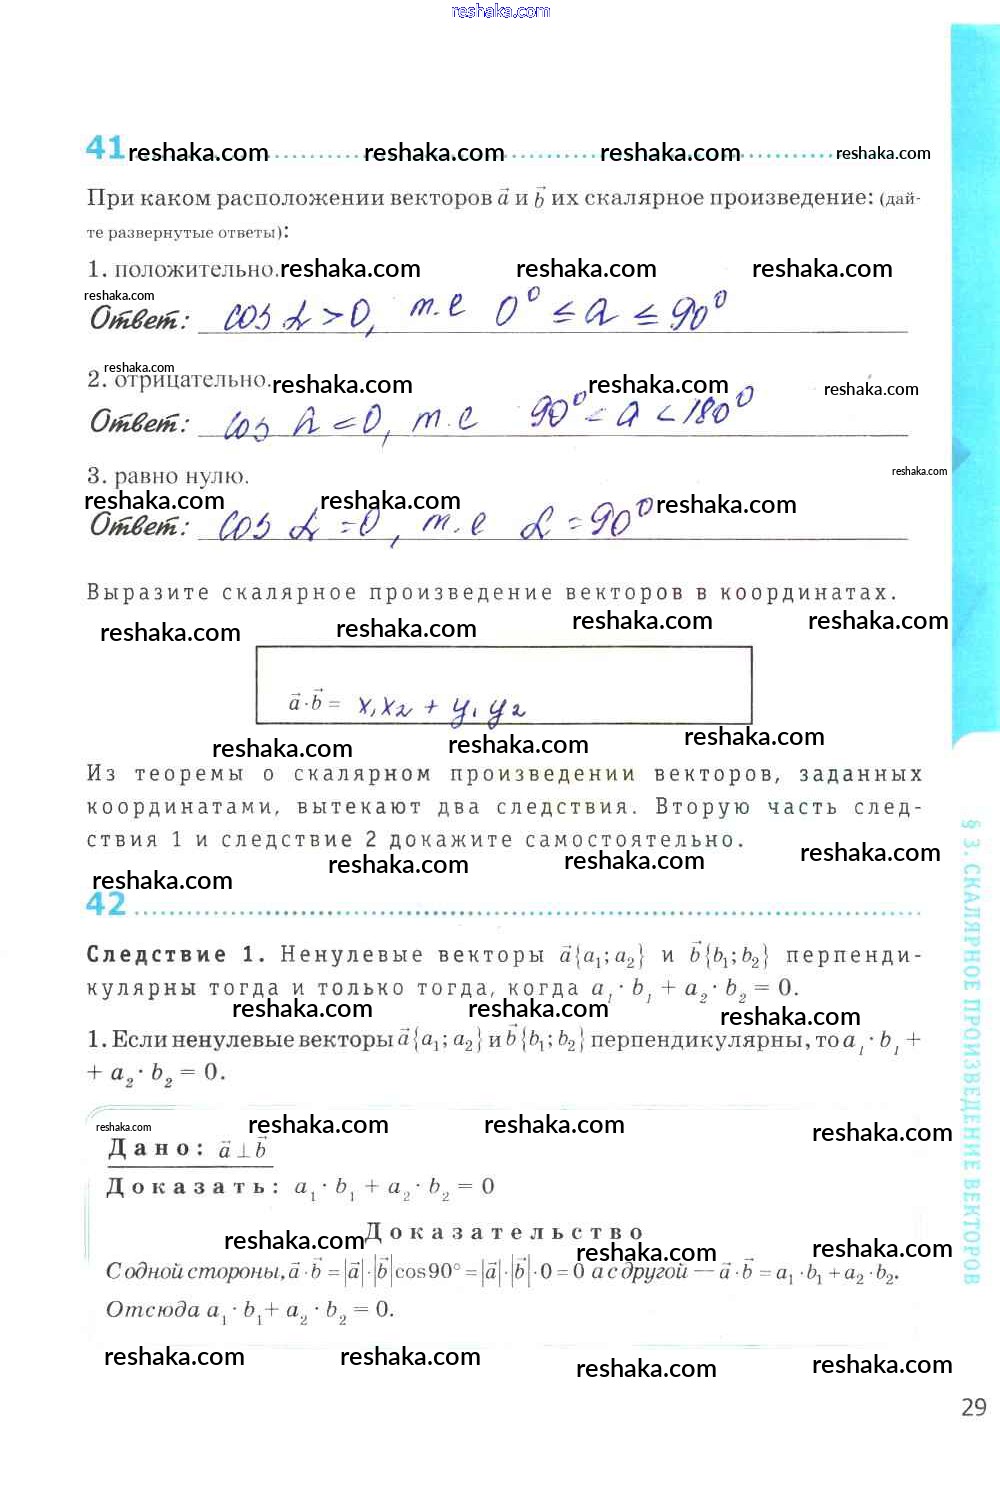 reshaka.com
41 reshaka.com reshaka.com reshaka.com reshaka.com
При каком расположении векторов a⃗ и b⃗ их скалярное произведение: (дай-
те развернутые ответы):
1. положительно. reshaka.com reshaka.com reshaka.com
reshaka.com
Ответ: cos α > 0, т.е 0° ≤ α ≤ 90°
reshaka.com
2. отрицательно. reshaka.com reshaka.com reshaka.com
Ответ: cos α < 0, т.е 90° < α < 180°
3. равно нулю. reshaka.com
reshaka.com reshaka.com reshaka.com
Ответ: cos α = 0, т.е α = 90°
Выразите скалярное произведение векторов в координатах.
reshaka.com reshaka.com reshaka.com reshaka.com
a⃗·b⃗ = x₁x₂ + y₁y₂
reshaka.com reshaka.com reshaka.com
Из теоремы о скалярном произведении векторов, заданных
координатами, вытекают два следствия. Вторую часть след-
ствия 1 и следствие 2 докажите самостоятельно.
reshaka.com reshaka.com reshaka.com reshaka.com
42
Следствие 1. Ненулевые векторы a⃗{a₁; a₂} и b⃗{b₁; b₂} перпенди-
кулярны тогда и только тогда, когда a₁ · b₁ + a₂ · b₂ = 0.
reshaka.com reshaka.com reshaka.com
1. Если ненулевые векторы a⃗{a₁; a₂} и b⃗{b₁; b₂} перпендикулярны, то a₁ · b₁ +
+ a₂ · b₂ = 0.
reshaka.com reshaka.com reshaka.com reshaka.com
Дано: a⃗ ⊥ b⃗
Доказать: a₁ · b₁ + a₂ · b₂ = 0
Доказательство
reshaka.com reshaka.com reshaka.com
С одной стороны, a⃗ · b⃗ = |a⃗| · |b⃗| cos 90° = |a⃗| · |b⃗| · 0 = 0 а с другой — a⃗ · b⃗ = a₁ · b₁ + a₂ · b₂.
Отсюда a₁ · b₁ + a₂ · b₂ = 0.
reshaka.com reshaka.com reshaka.com reshaka.com
§ 3. СКАЛЯРНОЕ ПРОИЗВЕДЕНИЕ ВЕКТОРОВ
29